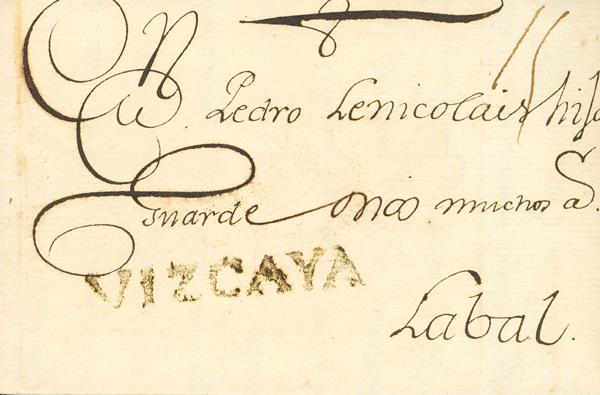 Pedro Lenicolais hijo
Guarde Dios muchos a.
VIZCAYA
Labal.